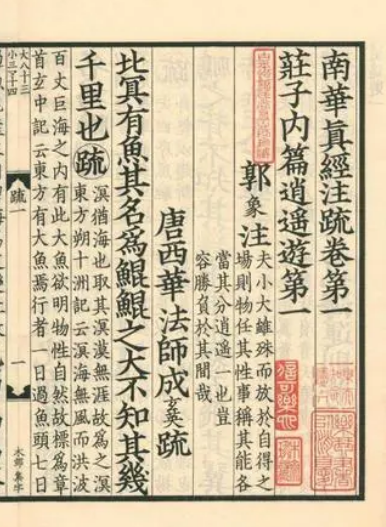 南華眞經注疏卷第一
莊子內篇逍遙遊第一
郭象注
夫小大雖殊而放於自得之
場則物任其性事稱其能各
當其分逍遙一也豈
容勝負於其間哉
唐西華法師成玄英疏
北冥有魚其名爲鯤鯤之大不知其幾
千里也疏
溟猶海也取其溟漠無涯故爲之溟
東方朔十洲記云溟海無風而洪波
百丈巨海之內有此大魚欲明物性自然故標爲章
首玄中記云東方有大魚焉行者一日過魚頭七日
大八十三
疏一
一
信可樂也